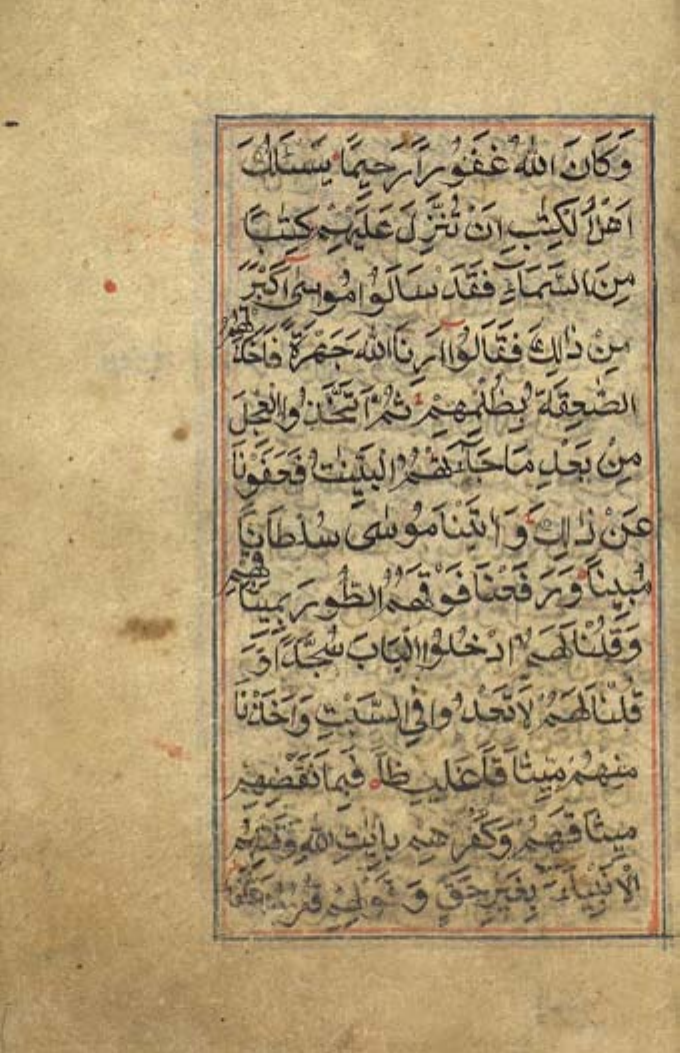 وَكَانَ اللهُ غَفُورًا رَحِيمًا يَسْـَٔلُكَ
اَهْلُ الْكِتٰبِ اَنْ تُنَزِّلَ عَلَيْهِمْ كِتٰبًا
مِنَ السَّمَآءِ فَقَدْ سَاَلُوا مُوسٰى اَكْبَرَ
مِنْ ذٰلِكَ فَقَالُوٓا اَرِنَا اللهَ جَهْرَةً فَاَخَذَتْهُمُ
الصّٰعِقَةُ بِظُلْمِهِمْ ثُمَّ اتَّخَذُوا الْعِجْلَ
مِنْ بَعْدِ مَا جَآءَتْهُمُ الْبَيِّنٰتُ فَعَفَوْنَا
عَنْ ذٰلِكَ وَاٰتَيْنَا مُوسٰى سُلْطَانًا
مُبِينًا وَرَفَعْنَا فَوْقَهُمُ الطُّورَ بِمِيثَاقِهِمْ
وَقُلْنَا لَهُمُ ادْخُلُوا الْبَابَ سُجَّدًا وَ
قُلْنَا لَهُمْ لَا تَعْدُوا فِي السَّبْتِ وَاَخَذْنَا
مِنْهُمْ مِيثَاقًا غَلِيظًا فَبِمَا نَقْضِهِمْ
مِيثَاقَهُمْ وَكُفْرِهِمْ بِاٰيٰتِ اللهِ وَقَتْلِهِمُ
الْاَنْبِيَآءَ بِغَيْرِ حَقٍّ وَقَوْلِهِمْ قُلُوبُنَا